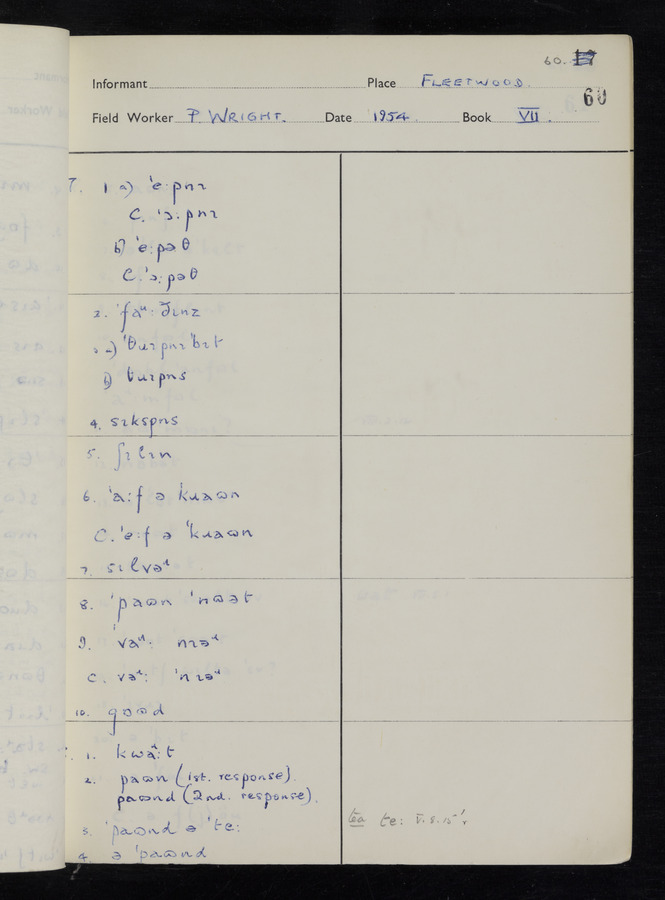 60.
Informant Place FLEETWOOD.
60
Field Worker P. WRIGHT. Date 1954 Book VII.
7. 1 a) ˈeːpnɪ
C. ˈɔːpnɪ
b) ˈeːpəθ
C. ˈɔːpəθ
2. ˈfaʴːðɪnz
a) ˈθɹɪpnɪˈbɪt
b) θɹɪpns
4. sɪkspns
5. ʃɪlɪn
6. ˈaːf ə kɹaʊn
C. ˈeːf ə ˈkɹaʊn
7. sɪlvəʴ
8. ˈpaʊn ˈnʊət
9. ˈvaʴː nɪəʴ
C. vəʴː ˈnɪəʴ
10. gʊʊd
1. kwaːt
2. paʊn (1st. response).
paʊnd (2nd. response).
3. ˈpaʊnd ə ˈteː
4. ə ˈpaʊnd
tea teː V.8.15